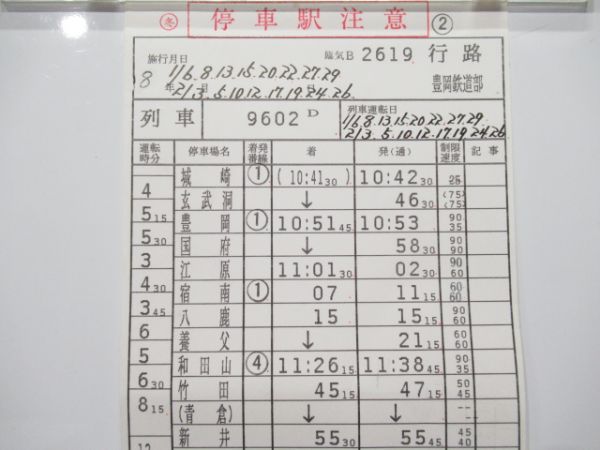 冬 停車駅注意 ②
施行月日 臨気B 2619 行路
8年 1/6.8.13.15.20.22.27.29
2/.3.5.10.12.17.19.24.26 豊岡鉄道部
列車 9602D 列車運転日 1/6.8.13.15.20.22.27.29
2/.3.5.10.12.17.19.24.26
運転時分 停車場名 着発番線 着 発(通) 制限速度 記事
城崎 ① (10:41 30) 10:42 30 25
4 玄武洞 ↓ 46 30 (75) (75)
5 15 豊岡 ① 10:51 45 10:53 90 35
5 30 国府 ↓ 58 30 90 90
3 江原 11:01 30 02 30 90 60
4 30 宿南 ① 07 11 15 60 60
3 45 八鹿 15 15 15 90 60
6 養父 ↓ 21 15 60 60
5 和田山 ④ 11:26 15 11:38 45 90 35
6 30 竹田 45 15 47 15 50 45
8 15 (青倉) ↓ ↓ -- --
新井 55 30 55 45 45 40
12